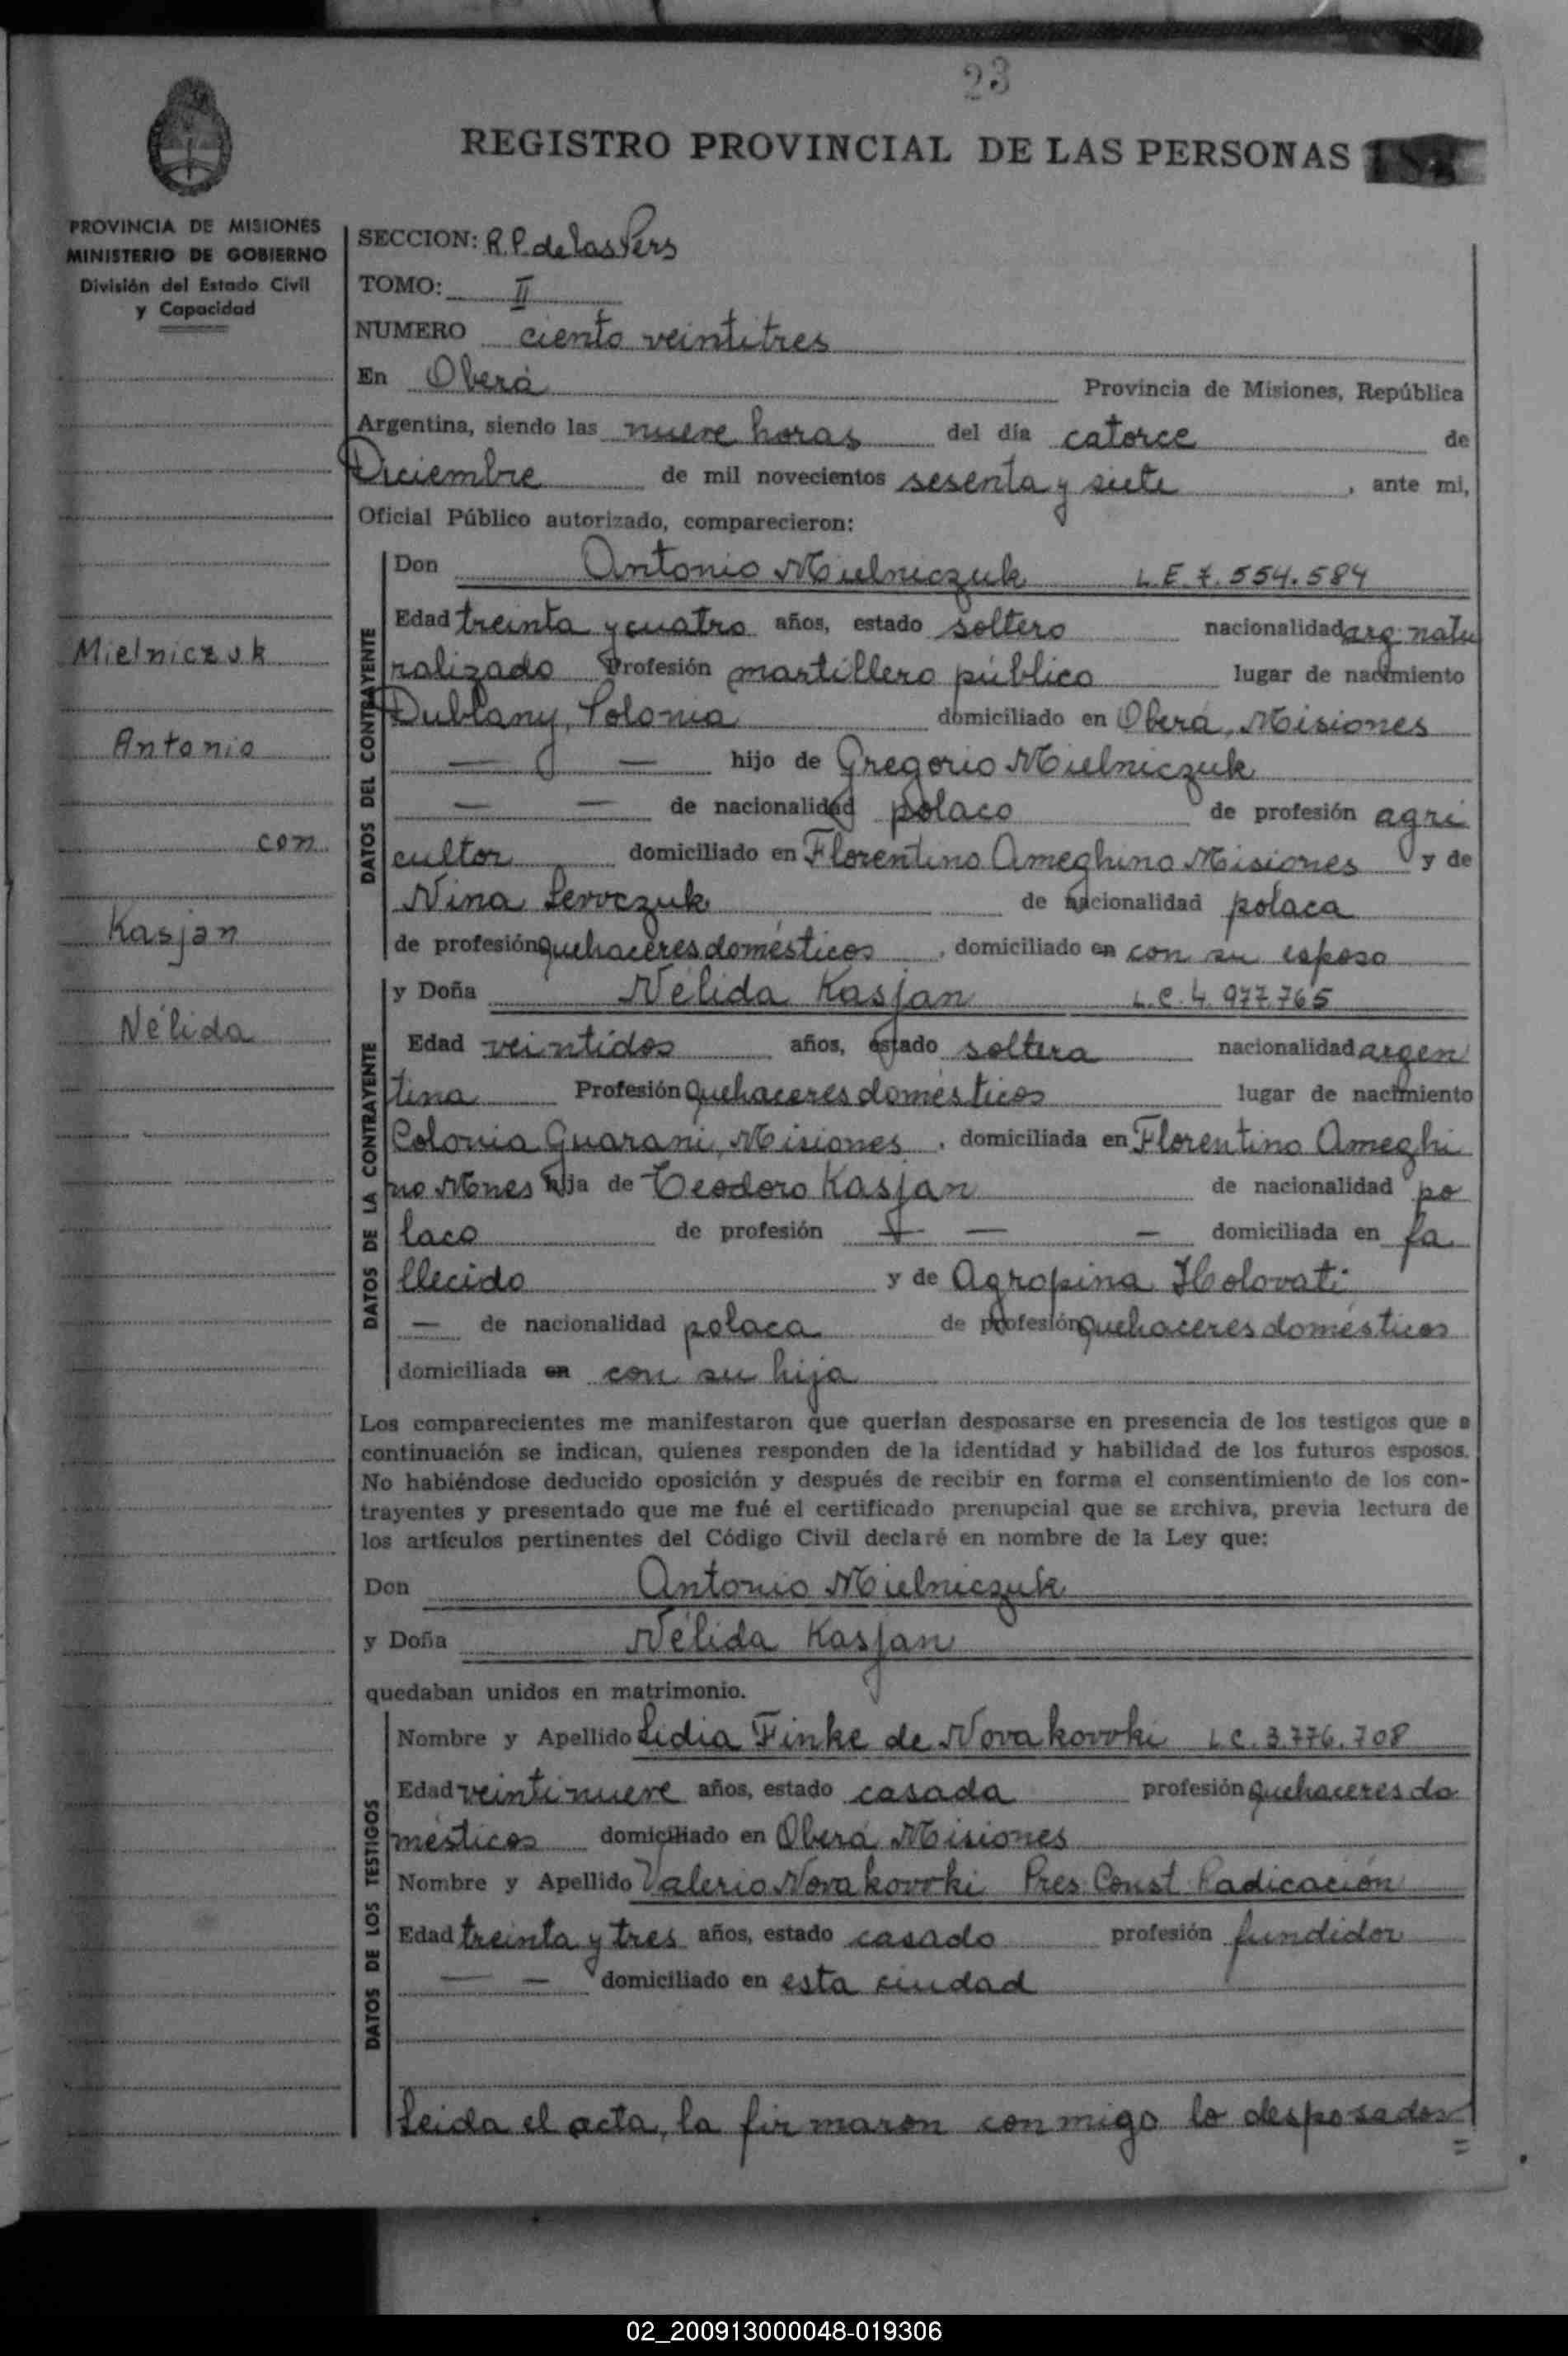 23
REGISTRO PROVINCIAL DE LAS PERSONAS
PROVINCIA DE MISIONES
MINISTERIO DE GOBIERNO
División del Estado Civil
y Capacidad
Mielniczuk
Antonio
con
Kasjan
Nélida
SECCION: R.P. de las Pers
TOMO: II
NUMERO ciento veintitres
En Oberá Provincia de Misiones, República
Argentina, siendo las nueve horas del día catorce de
Diciembre de mil novecientos sesenta y siete, ante mi,
Oficial Público autorizado, comparecieron:
DATOS DEL CONTRAYENTE
Don Antonio Mielniczuk L.E 7.554.584
Edad treinta y cuatro años, estado soltero nacionalidad arg. natu
ralizado Profesión martillero público lugar de nacimiento
Dublany, Polonia domiciliado en Oberá, Misiones
— — hijo de Gregorio Mielniczuk
— — de nacionalidad polaco de profesión agri
cultor domiciliado en Florentino Ameghino Misiones y de
Nina de nacionalidad polaca
de profesión quehaceres domésticos, domiciliado en con su esposo
DATOS DE LA CONTRAYENTE
y Doña Nélida Kasjan L.C. 4.977.765
Edad veintidos años, estado soltera nacionalidad argen
tina Profesión quehaceres domésticos lugar de nacimiento
Colonia Guarani, Misiones, domiciliada en Florentino Ameghi
no Mnes hija de Teodoro Kasjan de nacionalidad po
laco de profesión — — — domiciliada en fa
llecido y de Agropina Holovati
— de nacionalidad polaca de profesión quehaceres domésticos
domiciliada en con su hija
Los comparecientes me manifestaron que querían desposarse en presencia de los testigos que a
continuación se indican, quienes responden de la identidad y habilidad de los futuros esposos.
No habiéndose deducido oposición y después de recibir en forma el consentimiento de los con-
trayentes y presentado que me fué el certificado prenupcial que se archiva, previa lectura de
los artículos pertinentes del Código Civil declaré en nombre de la Ley que:
Don Antonio Mielniczuk
y Doña Nélida Kasjan
quedaban unidos en matrimonio.
DATOS DE LOS TESTIGOS
Nombre y Apellido Lidia Finke de Novakovski L.C. 3.776.708
Edad veintinueve años, estado casada profesión quehaceres do
mésticos domiciliado en Oberá Misiones
Nombre y Apellido Valerio Novakovski Pres Const Radicación
Edad treinta y tres años, estado casado profesión fundidor
— — domiciliado en esta ciudad
Leida el acta, la firmaron conmigo lo desposados
=
02_200913000048-019306